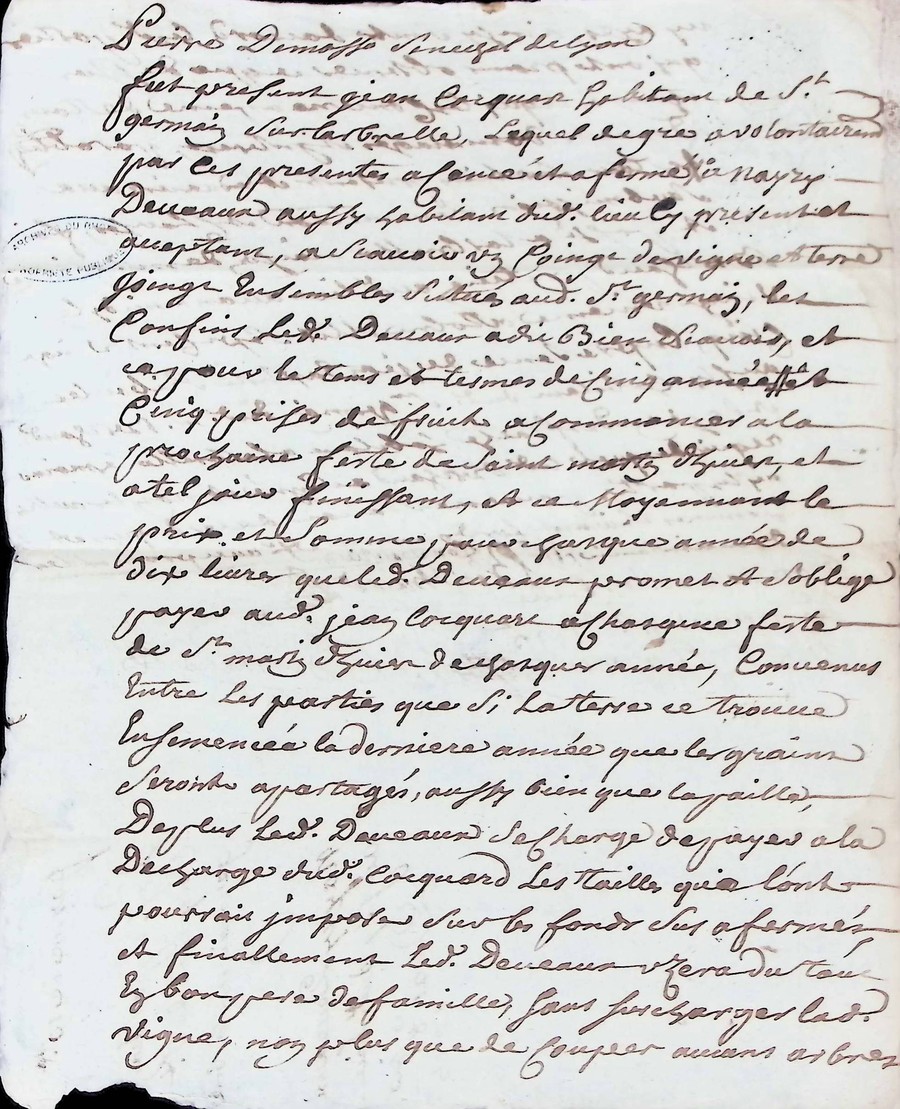 Pierre Demasso Senechal de lyon
fut present jean Cocquar habitant de S.t
germain Surlarbrelle, Lequel degré a volontairem
par Ces presentes a Cencé et afermé à
Deveaux aussy habitant dud. lieu Cy present et
aceptant, a Scavoir un Coing de vigne et terre
Joingt Ensembles Situés aud. S.t germain, les
Confins Led. Devaux a dit Bien Scavoir, et
ce pour le tems et termes de Cinq années et
Cinq prises de fruit a Commencer a la
prochaine feste de Saint martin dhiver, et
a tel jour finissant, et ce Moyennant le
prix et Somme pour chasque année de
dix livres que led. Deveaux promet et Soblige
payer aud. jean Cocquart a Chasque feste
de S.t martin dhiver de chasques année, Convenus
Entre Les parties que Si La terre ce trouve
Ensemencée la derniere année que les grains
Seront apartagés, aussy bien que la paille,
De plus Led. Deveaux Se Charge de payer a la
Decharge dud. Cocquard Les tailles que l'ont
pourrait jmposé Sur les fonds Sus afermés,
et finallement Led. Deveaux uzera du tout
En bon pere de famille, Sans surcharger lad.
vigne, non plus que de Couper aucuns arbres
ARCHIVES DU RHÔNE
PROPRIÉTÉ PUBLIQUE